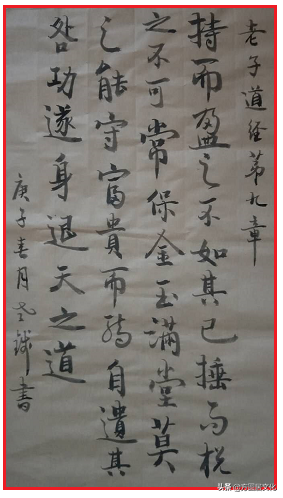 老子道经第九章
持而盈之不如其已捶而棁
之不可常保金玉滿堂莫
之能守富貴而骄自遺其
咎功遂身退天之道
庚子春月書
头条